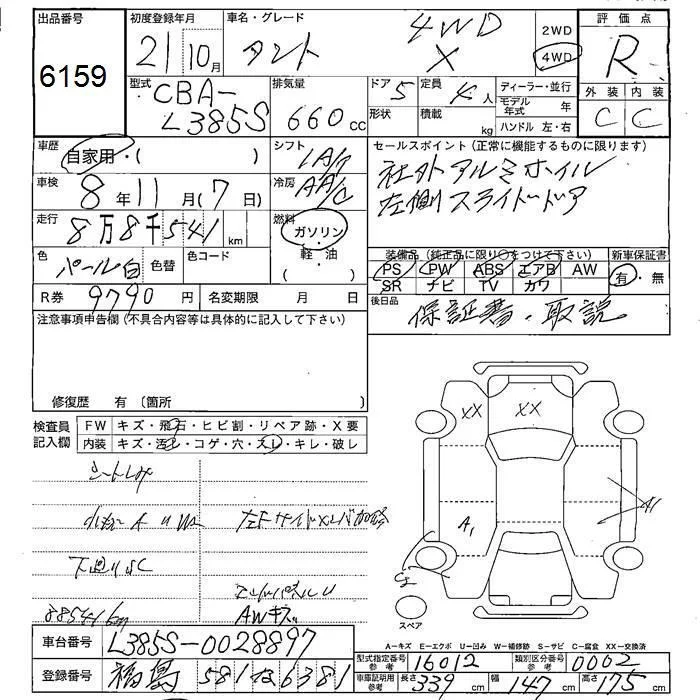 出品番号 6159
初度登録年月 21 10月
車名・グレード タント 4WD X
2WD
4WD
評価点 R
外装 内装
C C
型式 CBA-L385S
排気量 660 cc
ドア 5
定員 4 人
形状
積載 kg
ディーラー・並行
モデル年式 年
ハンドル 左・右
車歴 自家用・( )
シフト IA/T
車検 8 年 11 月 (7 日)
冷房 AA/C
走行 8万8千541 km
燃料 ガソリン・軽油 ( )
色 パール白 色替
色コード
R券 9790 円
名変期限 月 日
セールスポイント (正常に機能するものに限ります)
社外アルミホイル
左側スライドドア
装備品 (純正品に限り○をつけて下さい)
PS PW ABS エアB AW
SR ナビ TV カワ
新車保証書
有・無
後日品 保証書・取説
注意事項申告欄 (不具合内容等は具体的に記入して下さい)
修復歴 有 (箇所 )
検査員記入欄
FW キズ・飛石・ヒビ割・リペア跡・X要
内装 キズ・汚レ・コゲ・穴・スレ・キレ・破レ
AWキズ
XX XX
A1
スペア
A-キズ E-エクボ U-凹み W-補修跡 S-サビ C-腐食 XX-交換済
車台番号 L385S-0028897
登録番号 福島 581 6381
型式指定番号 参考 16012
類別区分番号 参考 0002
車庫証明用 参考 長さ 339 cm 幅 147 cm 高さ 175 cm